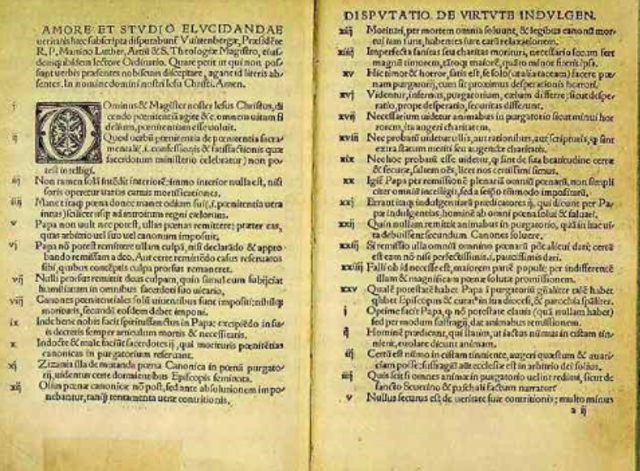 AMORE ET STVDIO ELVCIDANDAE
ueritatis hæc subscripta disputabunť Vuittenbergæ, Præsidẽte
R.P. Martino Luther, Artiũ & S. Theologiæ Magistro, eius-
demq; ibidem lectore Ordinario. Quare petit ut qui non pos
sunt uerbis præsentes nobiscum disceptare, agant id literis ab-
sentes. In nomine domini nostri Iesu Christi. Amen.
i Ominus & Magister noster Iesus Christus, di
cendo pœnitentiã agite &c. omnem uitam fi
delium, pœnitentiam esse uoluit.
ij Quod uerbũ pœnitentia de pœnitentia sacra-
mentali (.i. confessionis & satisfactionis quæ
sacerdotum ministerio celebratur) non po
test intelligi.
iij Non tamen solã intẽdit interiorẽ: immo interior nulla est, nisi
foris operetur uarias carnis mortificationes.
iiij Manet itaq; pœna donec manet odium sui (.i. pœnitentia uera
intus) scilicet usq; ad introitum regni cælorum.
v Papa non uult nec potest, ullas pœnas remittere; præter eas,
quas arbitrio uel suo uel canonum imposuit.
vj Papa nõ potest remittere ullam culpa, nisi declarãdo & appro-
bando remissam a deo. Aut certe remittẽdo casus reservatos
sibi, quibus contẽptis culpa prorsus remaneret.
vij Nulli prorsus remittit deus culpam, quin simul eum subijciat
humiliatum in omnibus sacerdoti suo uicario.
viij Canones pœnitentiales solũ uiuentibus sunt impositi; nihilq;
morituris, secundũ eosdem debet imponi.
ix Inde bene nobis facit spiritussanctus in Papa: excipiẽdo in su-
is decretis semper articulum mortis & necessitatis.
x Indocte & male faciũt sacerdotes ij, qui morituris pœnitẽtias
canonicas in purgatorium reseruant.
xj Zizania illa de mutanda pœna Canonica in pœnã purgato-
rij, uidentur certe dormientibus Episcopis seminata.
xij Olim pœnæ canonicæ nõ post, sed ante absolutionem im po
nebantur, tanq̃ tentamenta ueræ contritionis.
DISPVTATIO DE VIRTVTE INDVLGEN.
xiij Morituri, per mortem omnia soluunt, & legibus canonũ mor-
tui iam sunt, habentes iure earũ relaxationem.
xiiij Imperfecta sanitas seu charitas morituri, necessario secum fert
magnũ timorem, tãtoq; maiorẽ, quãto minor fuerit ipsa.
xv Hic timor & horror, satis est, se solo (ut alia taceam) facere pœ-
nam purgatorij, cum sit proximus desperationis horrori.
xvj Videntur, infernus, purgatorium, cælum differre; sicut despe-
ratio, prope desperatio, securitas differunt.
xvij Necessarium uidetur animabus in purgatorio sicut minui hor-
rorem, ita augeri charitatem.
xviij Nec probatũ uidetur ullis, aut rationibus, aut scripturis, q̃ sint
extra statum meriti seu augendæ charitatis.
xix Nec hoc probatũ esse uidetur, q̃ sint de sua beatitudine certæ
& securæ, saltem oẽs, licet nos certissimi simus.
xx Igit̃ Papa per remissionẽ plenariã omniũ pœnarũ, non simplici
citer omniũ intelligit, sed a seipso tm̃modo impositarũ.
xxj Errant itaq; indulgentiarũ prædicatores ij, qui dicunt per Pa-
pæ indulgentias, hominẽ ab omni pœna solui & saluari.
xxij Quin nullam remittit animabus in purgatorio, quã in hac ui-
ta debuissent secundum Canones soluere.
xxiij Si remissio ulla omniũ omnino pœnarũ põt alicui dari; certũ
est eam nõ nisi perfectissimis, .i. paucissimis dari.
xxiiij Falli ob id necesse est, maiorem partẽ populi: per indifferentẽ
illam & magnificam pœnæ solutæ promissionem.
xxv Qualẽ potestatẽ habet Papa ĩ purgatoriũ gñaliter talẽ habet
q̃libet Episcopus & curat9 in sua diœcesi, & parochia sp̃aliter.
i Optime facit Papa, q̃ nõ potestate clauis (quã nullam habet)
sed per modum suffragij, dat animabus remissionem.
ij Hominẽ prædicant, qui statim, ut iactus nũmus in cistam tin-
nierit, euolare dicunt animam.
iij Certũ est nũmo in cistam tinniente, augeri quæstum & auari-
ciam posse: suffragiũ aũt ecclesiæ est in arbitrio dei solius.
iiij Quis scit si omnes animæ in purgatorio uelint redimi, sicut de
sancto Seuerino & paschali factum narratur.
v Nullus securus est de ueritate suæ contritionis; multo minus
a ij